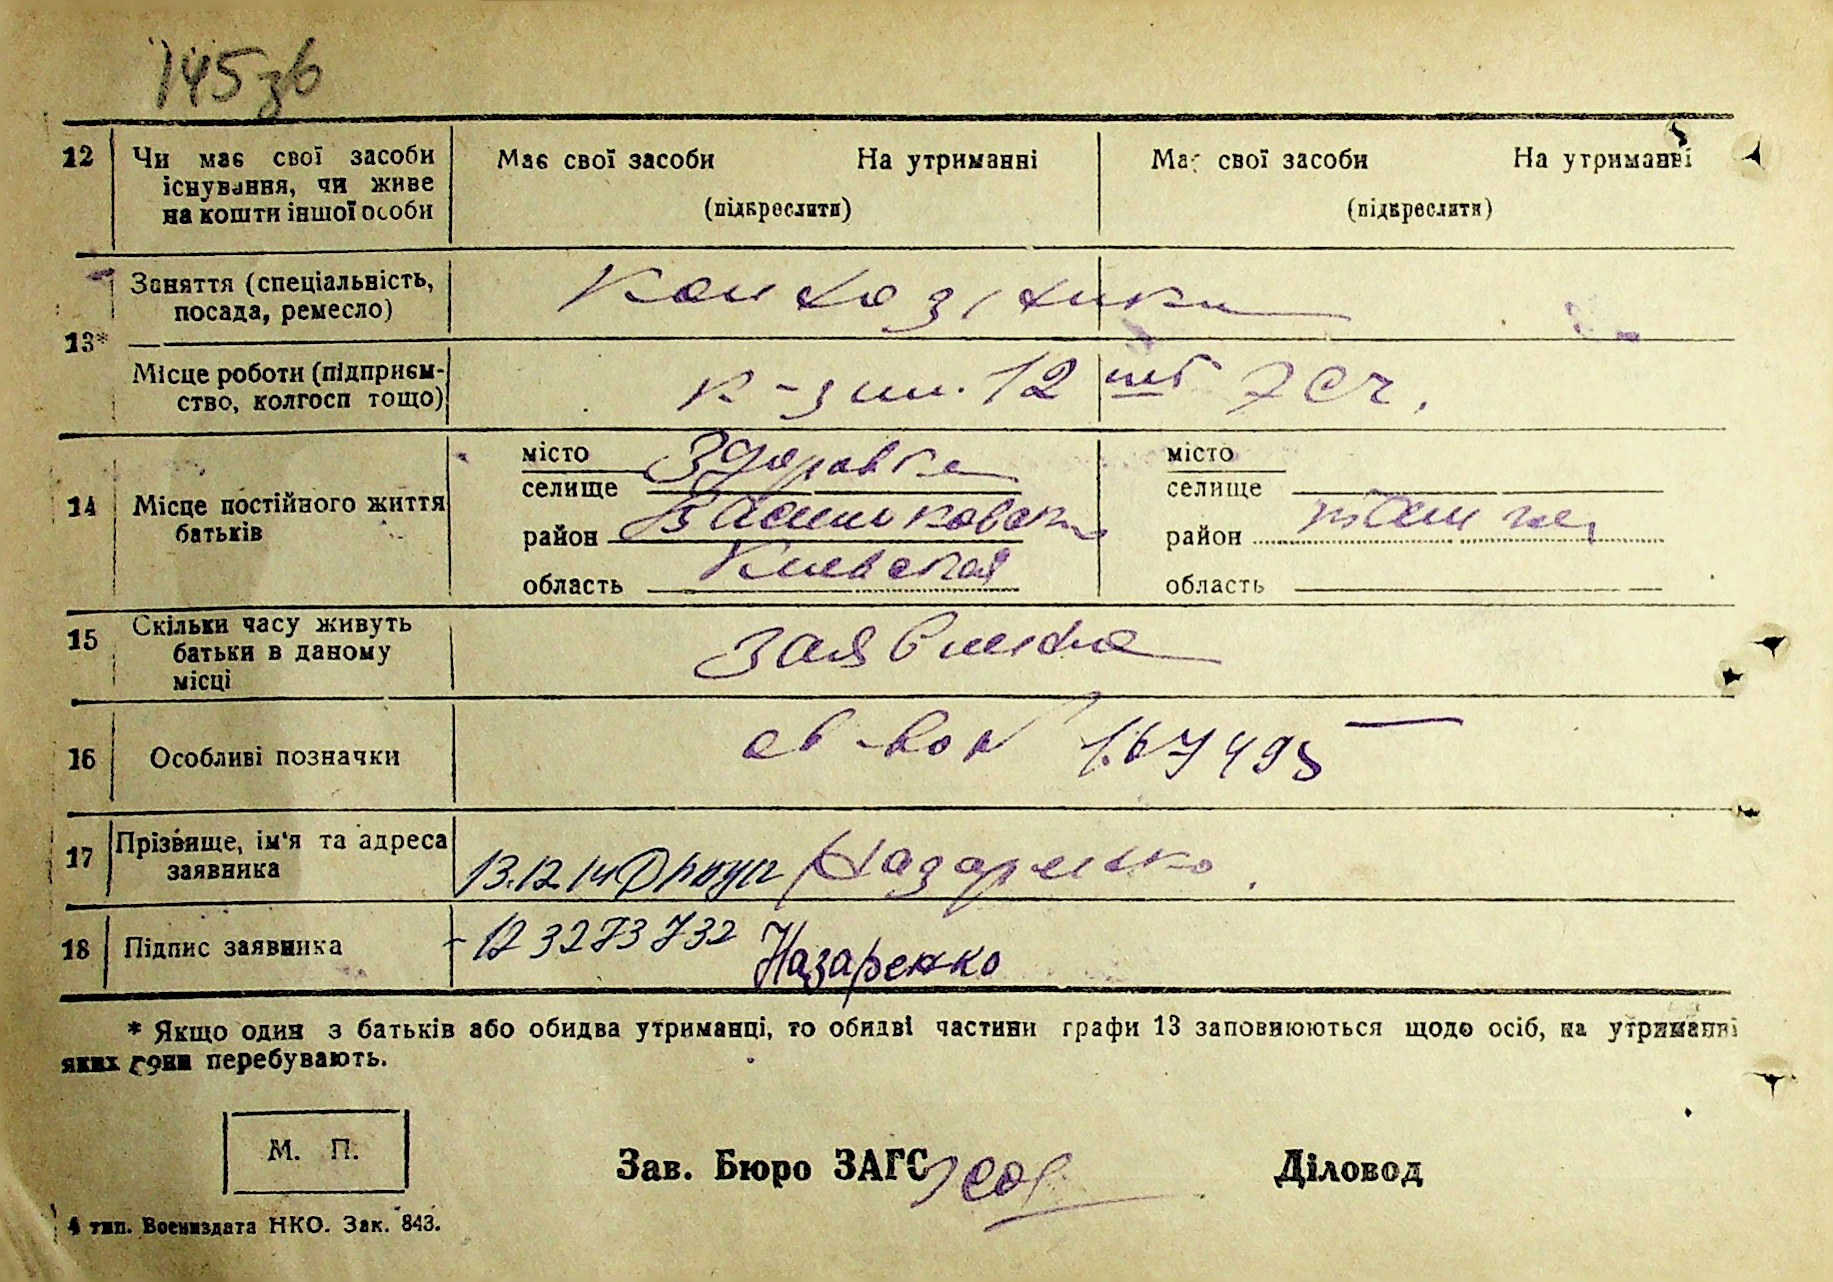 145зв
12 Чи має свої засоби існування, чи живе на кошти іншої особи
Має свої засоби На утриманні
(підкреслити)
Має свої засоби На утриманні
(підкреслити)
13* Заняття (спеціальність, посада, ремесло)
Колхозники
Місце роботи (підприємство, колгосп тощо)
к-з им. 12
14 Місце постійного життя батьків
місто
селище Здоровка
район Васильковск
область Киевская
місто
селище
район
область
15 Скільки часу живуть батьки в даному місці
16 Особливі позначки
св-во №
17 Прізвище, ім'я та адреса заявника
13.12.14 Назаренко.
18 Підпис заявника
123273732 Назаренко
* Якщо один з батьків або обидва утриманці, то обидві частини графи 13 заповнюються щодо осіб, на утриманні
яких вони перебувають.
М. П.
Зав. Бюро ЗАГС
Діловод
4 тип. Воениздата НКО. Зак. 843.